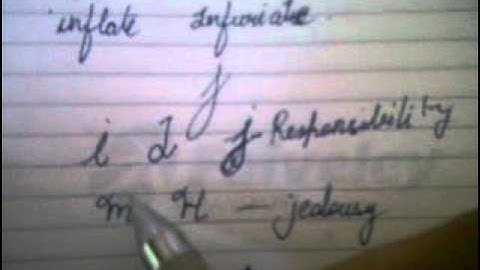 inflate Infuriate
J
i I J - Responsibility
m H - jealousy